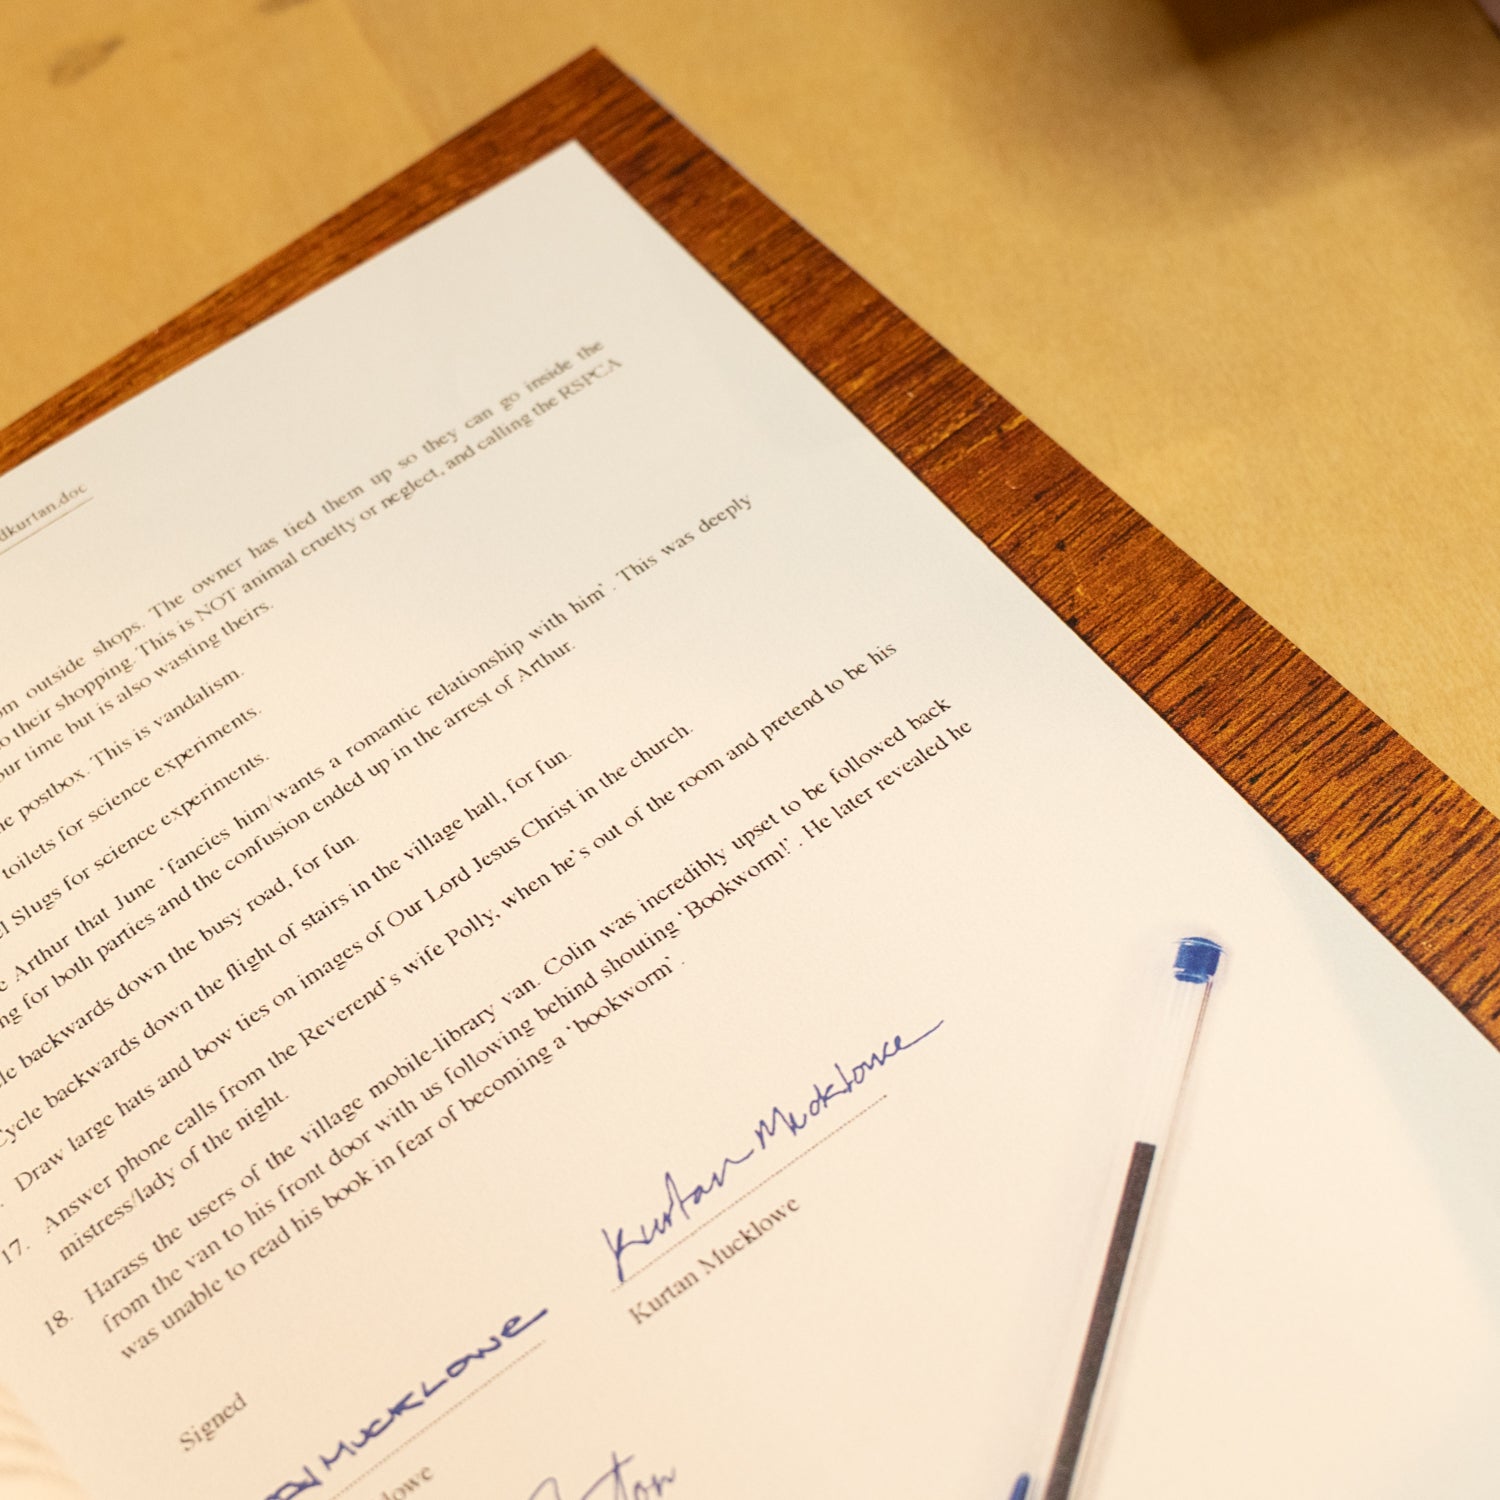 dkurtan.doc
om outside shops. The owner has tied them up so they can go inside the
o their shopping. This is NOT animal cruelty or neglect, and calling the RSPCA
our time but is also wasting theirs.
he postbox. This is vandalism.
toilets for science experiments.
el Slugs for science experiments.
e Arthur that June 'fancies him/wants a romantic relationship with him'. This was deeply
ng for both parties and the confusion ended up in the arrest of Arthur.
le backwards down the busy road, for fun.
Cycle backwards down the flight of stairs in the village hall, for fun.
Draw large hats and bow ties on images of Our Lord Jesus Christ in the church.
17. Answer phone calls from the Reverend's wife Polly, when he's out of the room and pretend to be his
mistress/lady of the night.
18. Harass the users of the village mobile-library van. Colin was incredibly upset to be followed back
from the van to his front door with us following behind shouting 'Bookworm!'. He later revealed he
was unable to read his book in fear of becoming a 'bookworm'.
Signed
MUCKLOWE
Kurtan Mucklowe
Kurtan Mucklowe
lowe